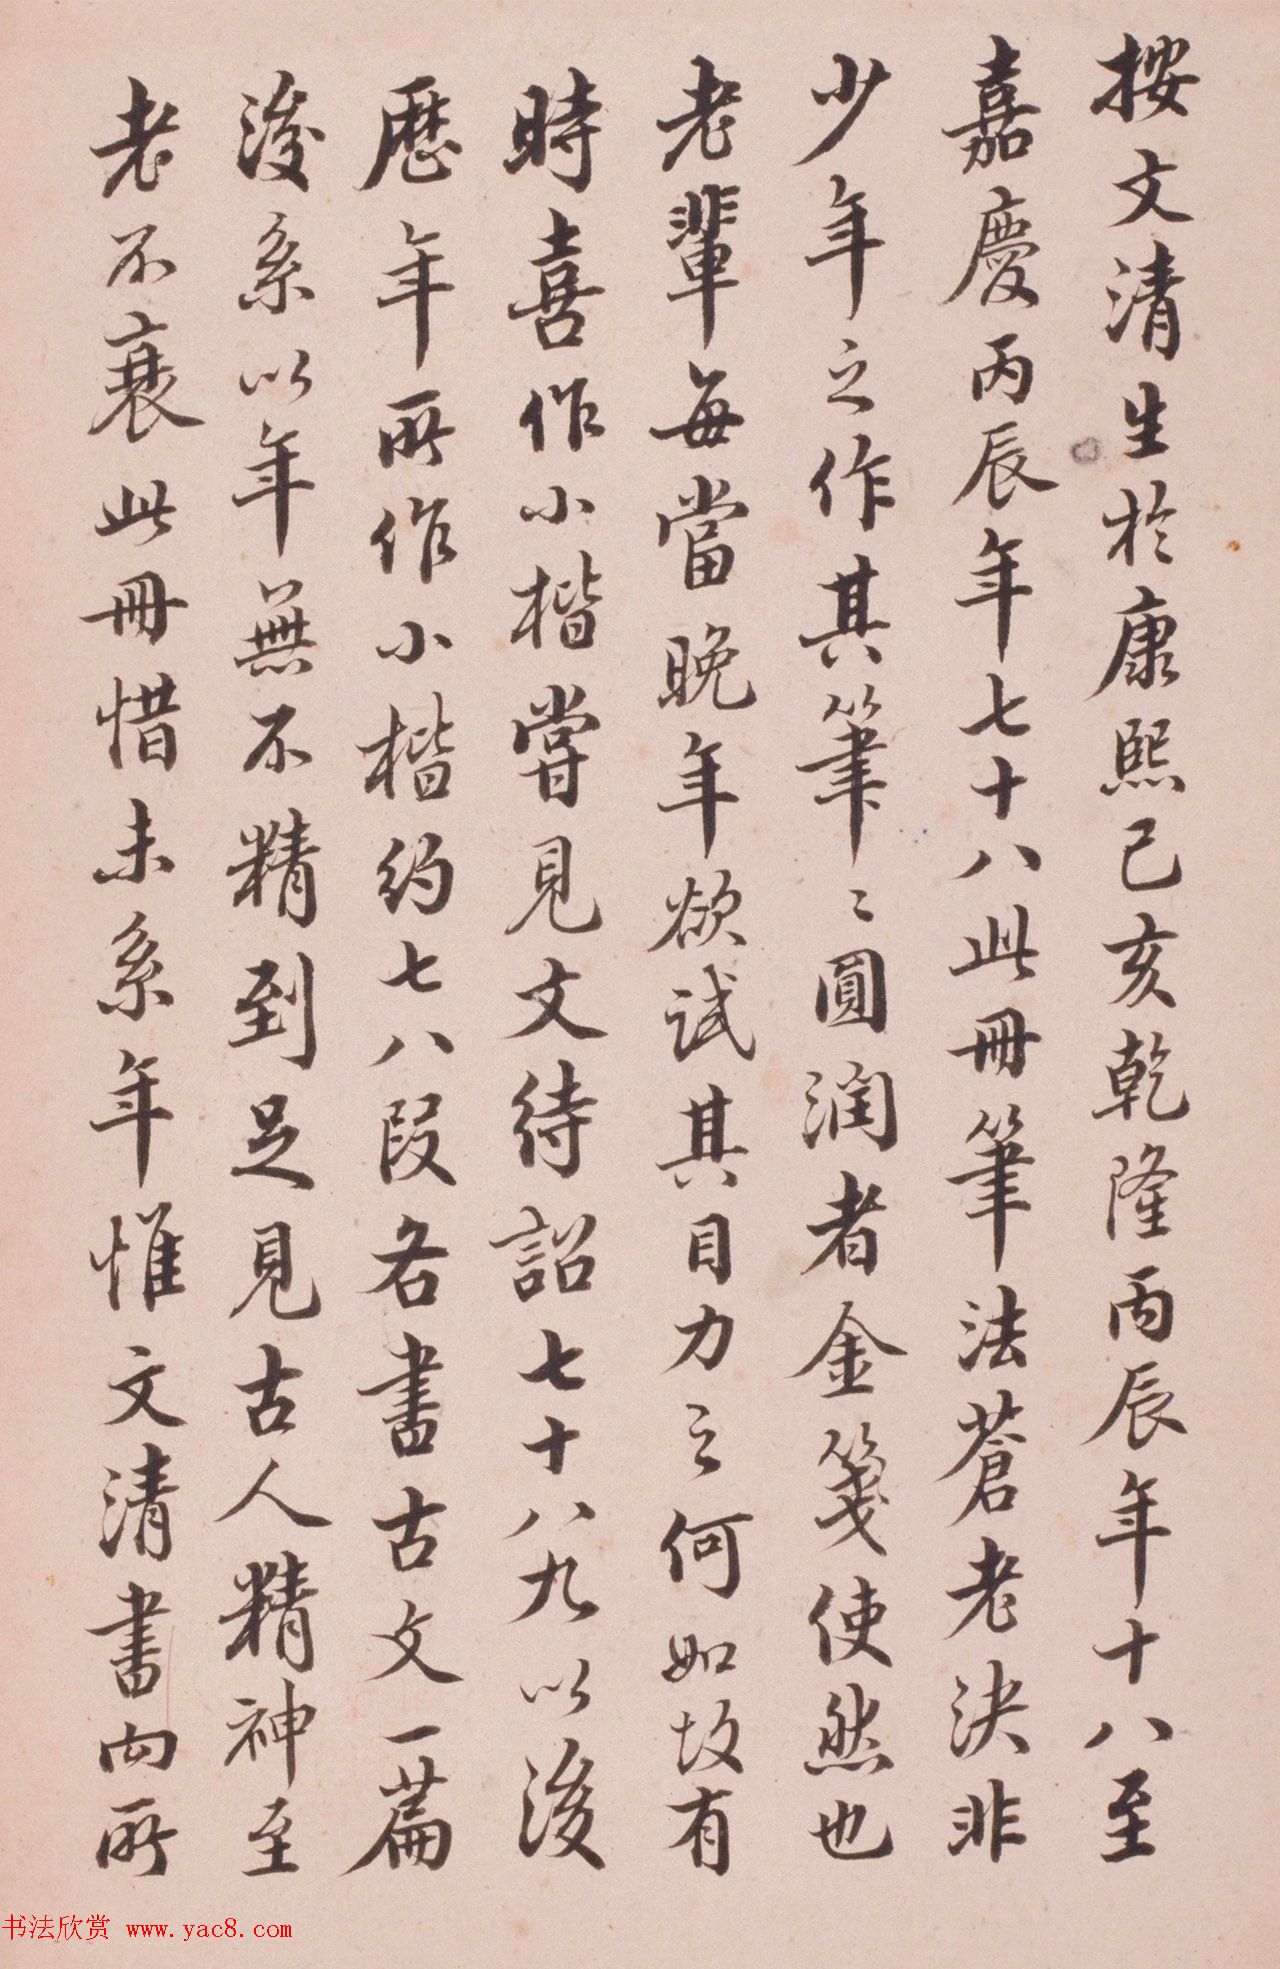 按文清生於康熙己亥乾隆丙辰年十八至
嘉慶丙辰年七十八此冊筆法蒼老決非
少年之作其筆〻圓潤者金箋使然也
老輩每當晚年欲試其目力之何如故有
時喜作小楷嘗見文待詔七十八九以後
歷年所作小楷約七八段各書古文一篇
後系以年無不精到足見古人精神至
老不衰此冊惜未系年惟文清書向所
书法欣赏 www.yac8.com